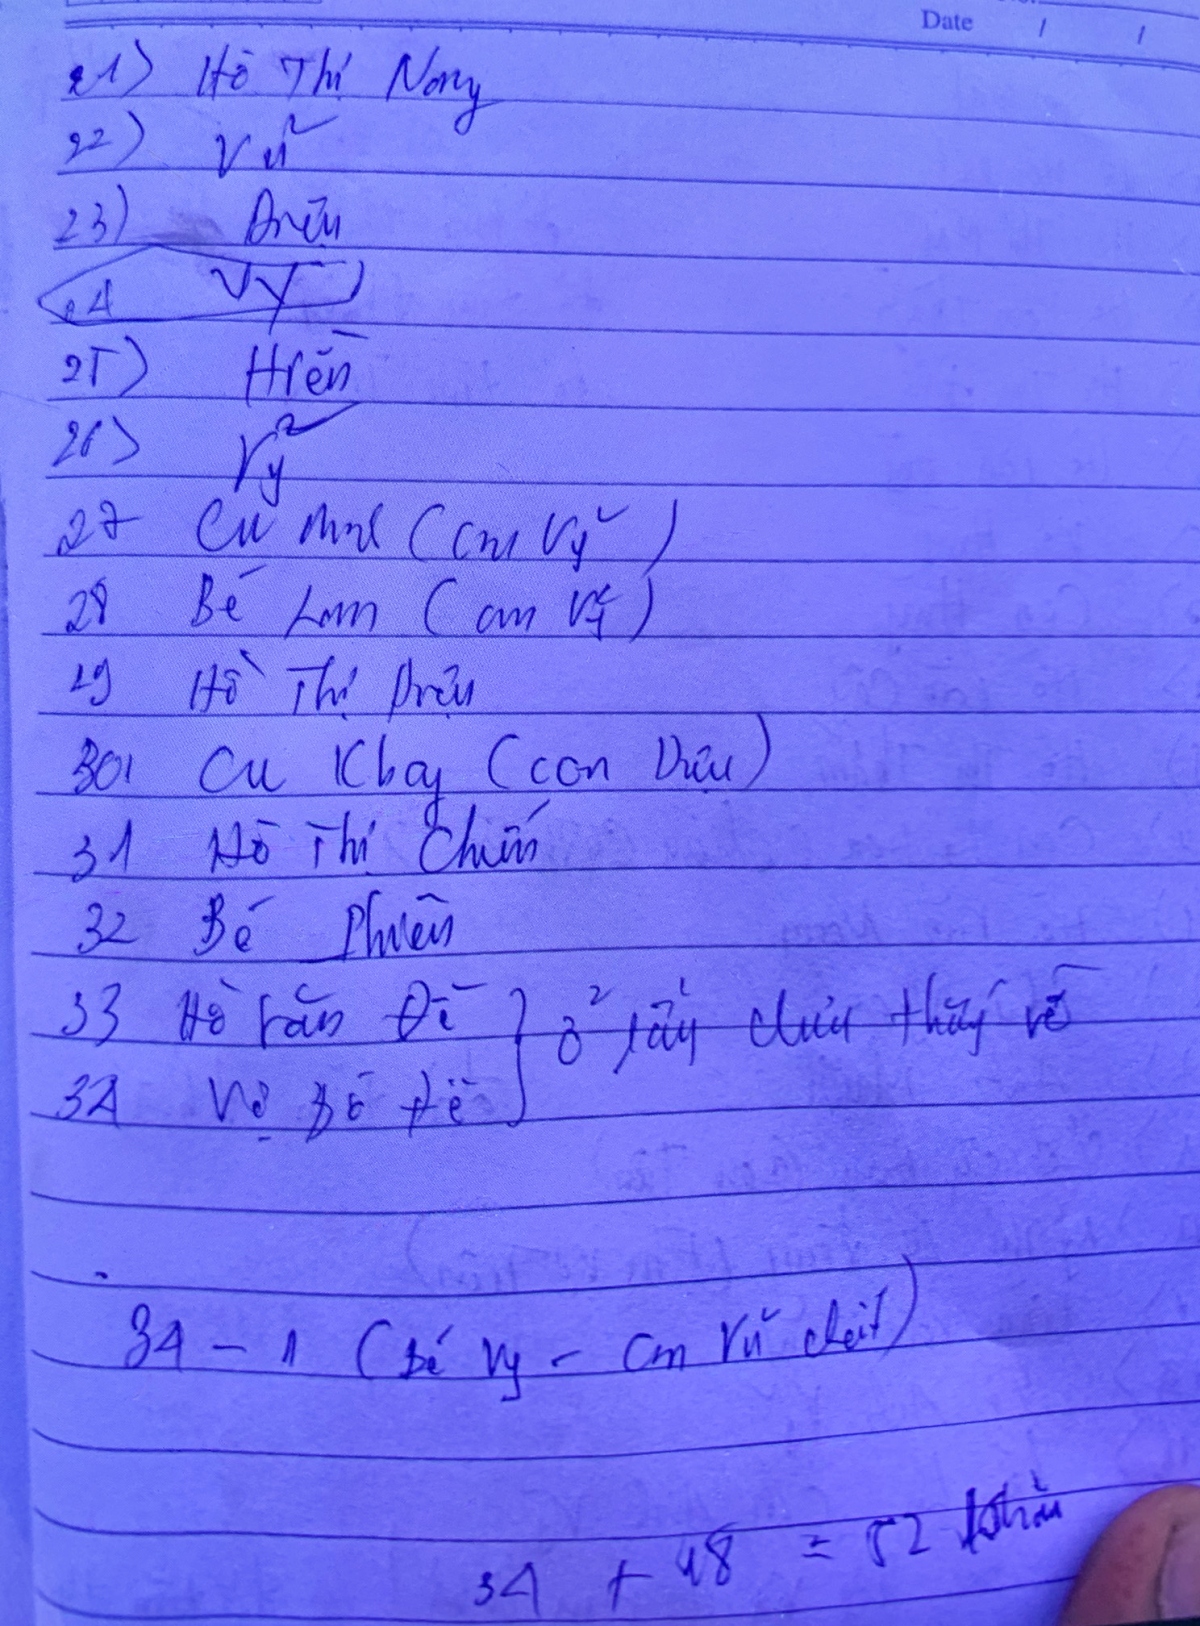 Date / /
21) Hồ Thị Nong
22) Vũ
23) Diệu
24 Vy
25) Hiền
26) Vỹ
27 Cu (con Vỹ)
28 Bé Lam (con Vỹ)
29 Hồ Thị Diệu
30, Cu Khay (con Diệu)
31 Hồ Thị Chiến
32 Bé Phiên
33 Hồ Văn Đề } ở rẫy chưa thấy về
34 Vợ Bố Đề
34 - 1 (Bé Vy - con Vũ chết)
34 + 48 = 52 khẩu